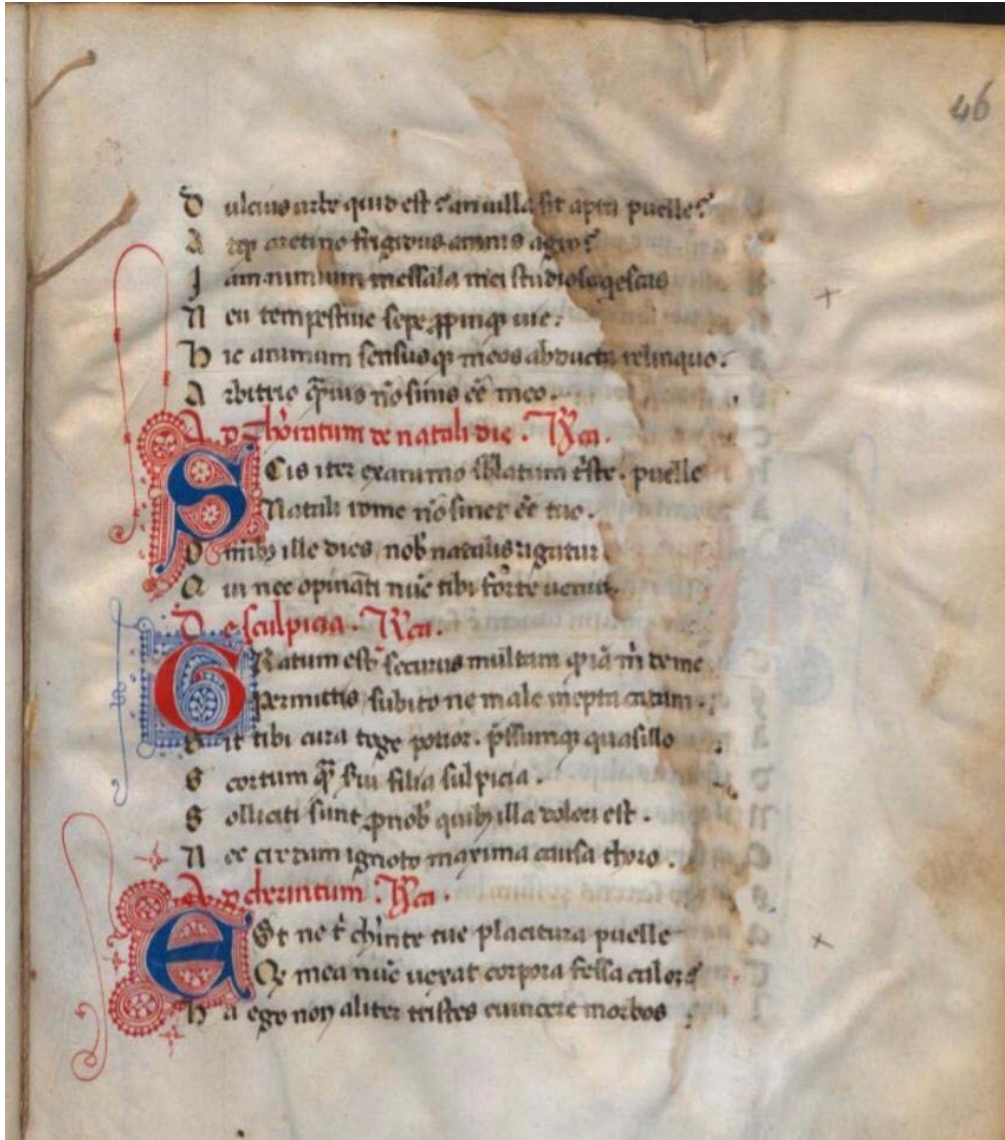 46
D ulcius urbe quid est? an villa sit apta puelle?
A tqꝫ aretino frigidus amnis agro?
I am nimium messala mei studiose qescas
N eu tempestiue sepe ꝓpinqꝫ uie.
h ic animum sensusqꝫ meos abducta relinquo.
A rbitrio qͣuis nō sinis eē meo.
A d de natali die. Rͨa.
S Cis iter ex animo sblatum tͥste. puelle
Natali rome nō sinet eē tuo.
O mibꝫ ille dies nob natalis
Q ui nec opinati nūc tibi forte
D e sculpicia. Rͨa.
G Ratum est securus multum qͥ iā m̄ de me
Permittis subito ne male inepta cadam.
S it tibi cura toge potior. p̄ssumqꝫ quasillo
S cortum qͣꝫ filia sulpicia.
S olliciti sunt ꝓ nob quibꝫ illa dolori est.
N e cedam ignoto maxima causa thoro.
A d Rͨa.
E St ne tͥ tue placitura puelle
Qꝫ mea nūc uexat corpora fessa calor?
h a ego non aliter tristes euincere morbos